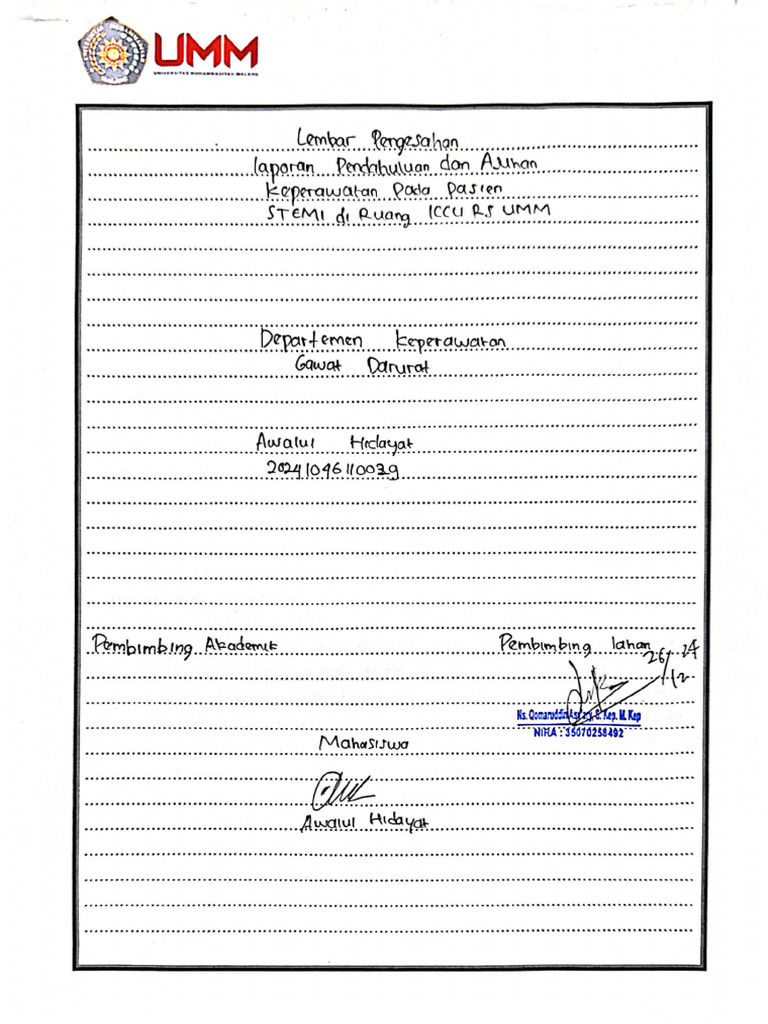 UMM
UNIVERSITAS MUHAMMADIYAH MALANG
Lembar Pengesahan
Laporan Pendahuluan dan Asuhan
Keperawatan Pada Pasien
STEMI di Ruang ICCU RS UMM
Departemen Keperawatan
Gawat Darurat
Awalul Hidayat
202410461110039
Pembimbing Akademik
Pembimbing lahan
26/12 24
Ns. Qomaruddin
S. Kep. M. Kep
NIRA : 35070258492
Mahasiswa
Awalul Hidayat